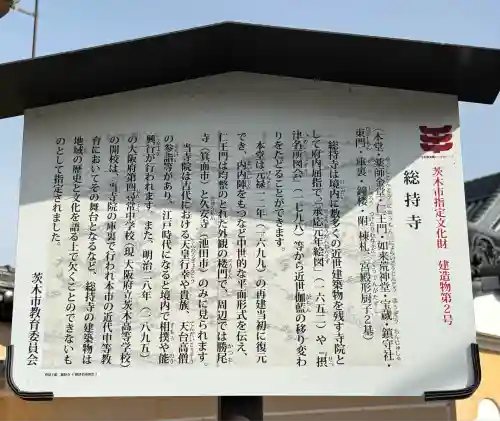 茨木市指定文化財　建造物第２号
総持寺
（本堂・薬師金堂・仁王門・如来荒神堂・宝蔵・鎮守社・
東門・庫裏・鐘楼・附　棟札・宮殿形厨子の基）
総持寺は境内に数多くの近世建築物を残す寺院と
して府内屈指で「承応元年絵図」（一六五二）や『摂
津名所図会』（一七九八）等から近世伽藍の移り変わ
りをたどることができます。
本堂は元禄一二年（一六九九）の再建当初に復元
でき、内内陣をもつなど中世的な平面形式を伝え、
仁王門は均整のとれた外観の楼門で、周辺では勝尾
寺（箕面市）と久安寺（池田市）のみに見られます。
当寺院は古代における天皇行幸や貴族、天台高僧
の参詣等があり、江戸時代になると境内で相撲や能
興行が行われます。また、明治二八年（一八九五）
の大阪府第四尋常中学校（現大阪府立茨木高等学校）
の開校は、当寺院の庫裏で行われ本市の近代中等教
育においてその舞台となるなど、総持寺の建築物は
地域の歴史と文化を語る上で欠くことのできないも
のとして指定されました。
茨木市教育委員会